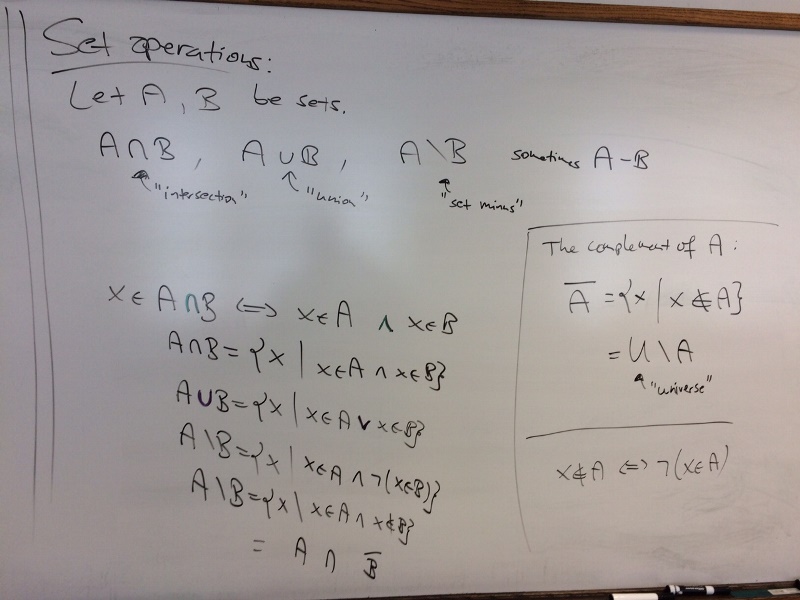 Set operations:
Let A, B be sets.
A∩B, A∪B, A\B sometimes A-B
"intersection" "union" "set minus"
x∈A∩B ⟺ x∈A ∧ x∈B
A∩B={x | x∈A ∧ x∈B}
A∪B={x | x∈A ∨ x∈B}
A\B={x | x∈A ∧ ¬(x∈B)}
A\B={x | x∈A ∧ x∉B}
= A ∩ B̅
The complement of A:
A̅ = {x | x∉A}
= U\A
"universe"
x∉A ⟺ ¬(x∈A)